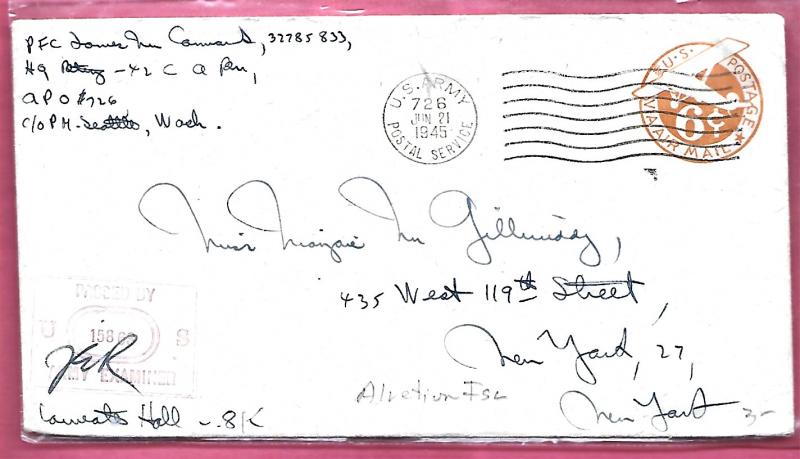 PFC James Mc Cormack, 32785833,
Hq Btry - 42 C A Bn,
APO #726
C/O P.M. Seattle, Wash.
U.S. ARMY
726
JUN 21
1945
POSTAL SERVICE
U.S. POSTAGE
6¢
VIA AIR MAIL
Miss Marjorie Mc Gillicuddy,
435 West 119th Street,
New York, 27,
New York
PASSED BY
U S
ARMY EXAMINER
JER
Laureate Hall - 8K
3-